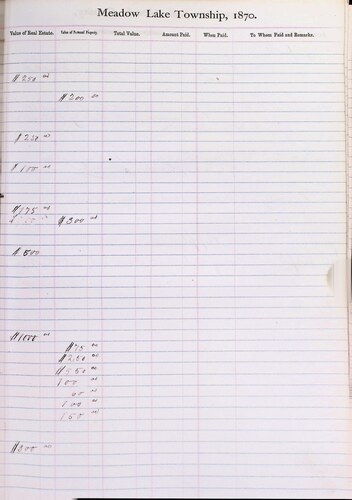 Meadow Lake Township, 1870.
Value of Real Estate. Value of Personal Property. Total Value. Amount Paid. When Paid. To Whom Paid and Remarks.
$200 00
$250 00
$100 00
$175 00
$300 00
$500
$1000 00
$75 00
$250 00
100 00
00 00
150 00
$300 00